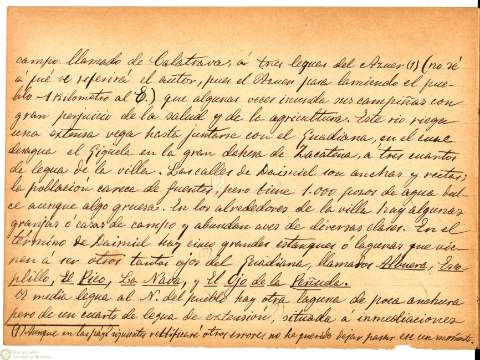 campo llamado de Calatrava, á tres leguas del Azuer (1) (no sé
á qué se referirá el autor, pues el Azuer pasa lamiendo el pue-
blo 1 kilómetro al E.) que algunas veces inunda sus campiñas con
gran perjuicio de la salud y de la agricultura. Este río riega
una extensa vega hasta juntarse con el Guadiana, en el cual
desagua el Gigüela en la gran dehesa de Zacatena, a tres cuartos
de legua de la villa. Las calles de Daimiel son anchas y rectas;
la población carece de fuentes, pero tiene 1.000 pozos de agua dul-
ce aunque algo gruesa. En los alrededores de la villa hay algunas
granjas ó casas de campo y abundan aves de diversas clases. En el
término de Daimiel hay cinco grandes estanques ó lagunas que vie-
nen á ser otros tantos ojos del Guadiana, llamados Albuera, Esco-
plillo, El Rico, La Nava, y El Ojo de la Peñuela.
A media legua al N. del pueblo hay otra laguna de poca anchura
pero de un cuarto de legua de extensión, situada á inmediaciones
(1) Aunque en las pág. siguientes rectificaré otros errores no he querido dejar pasar en un momento.